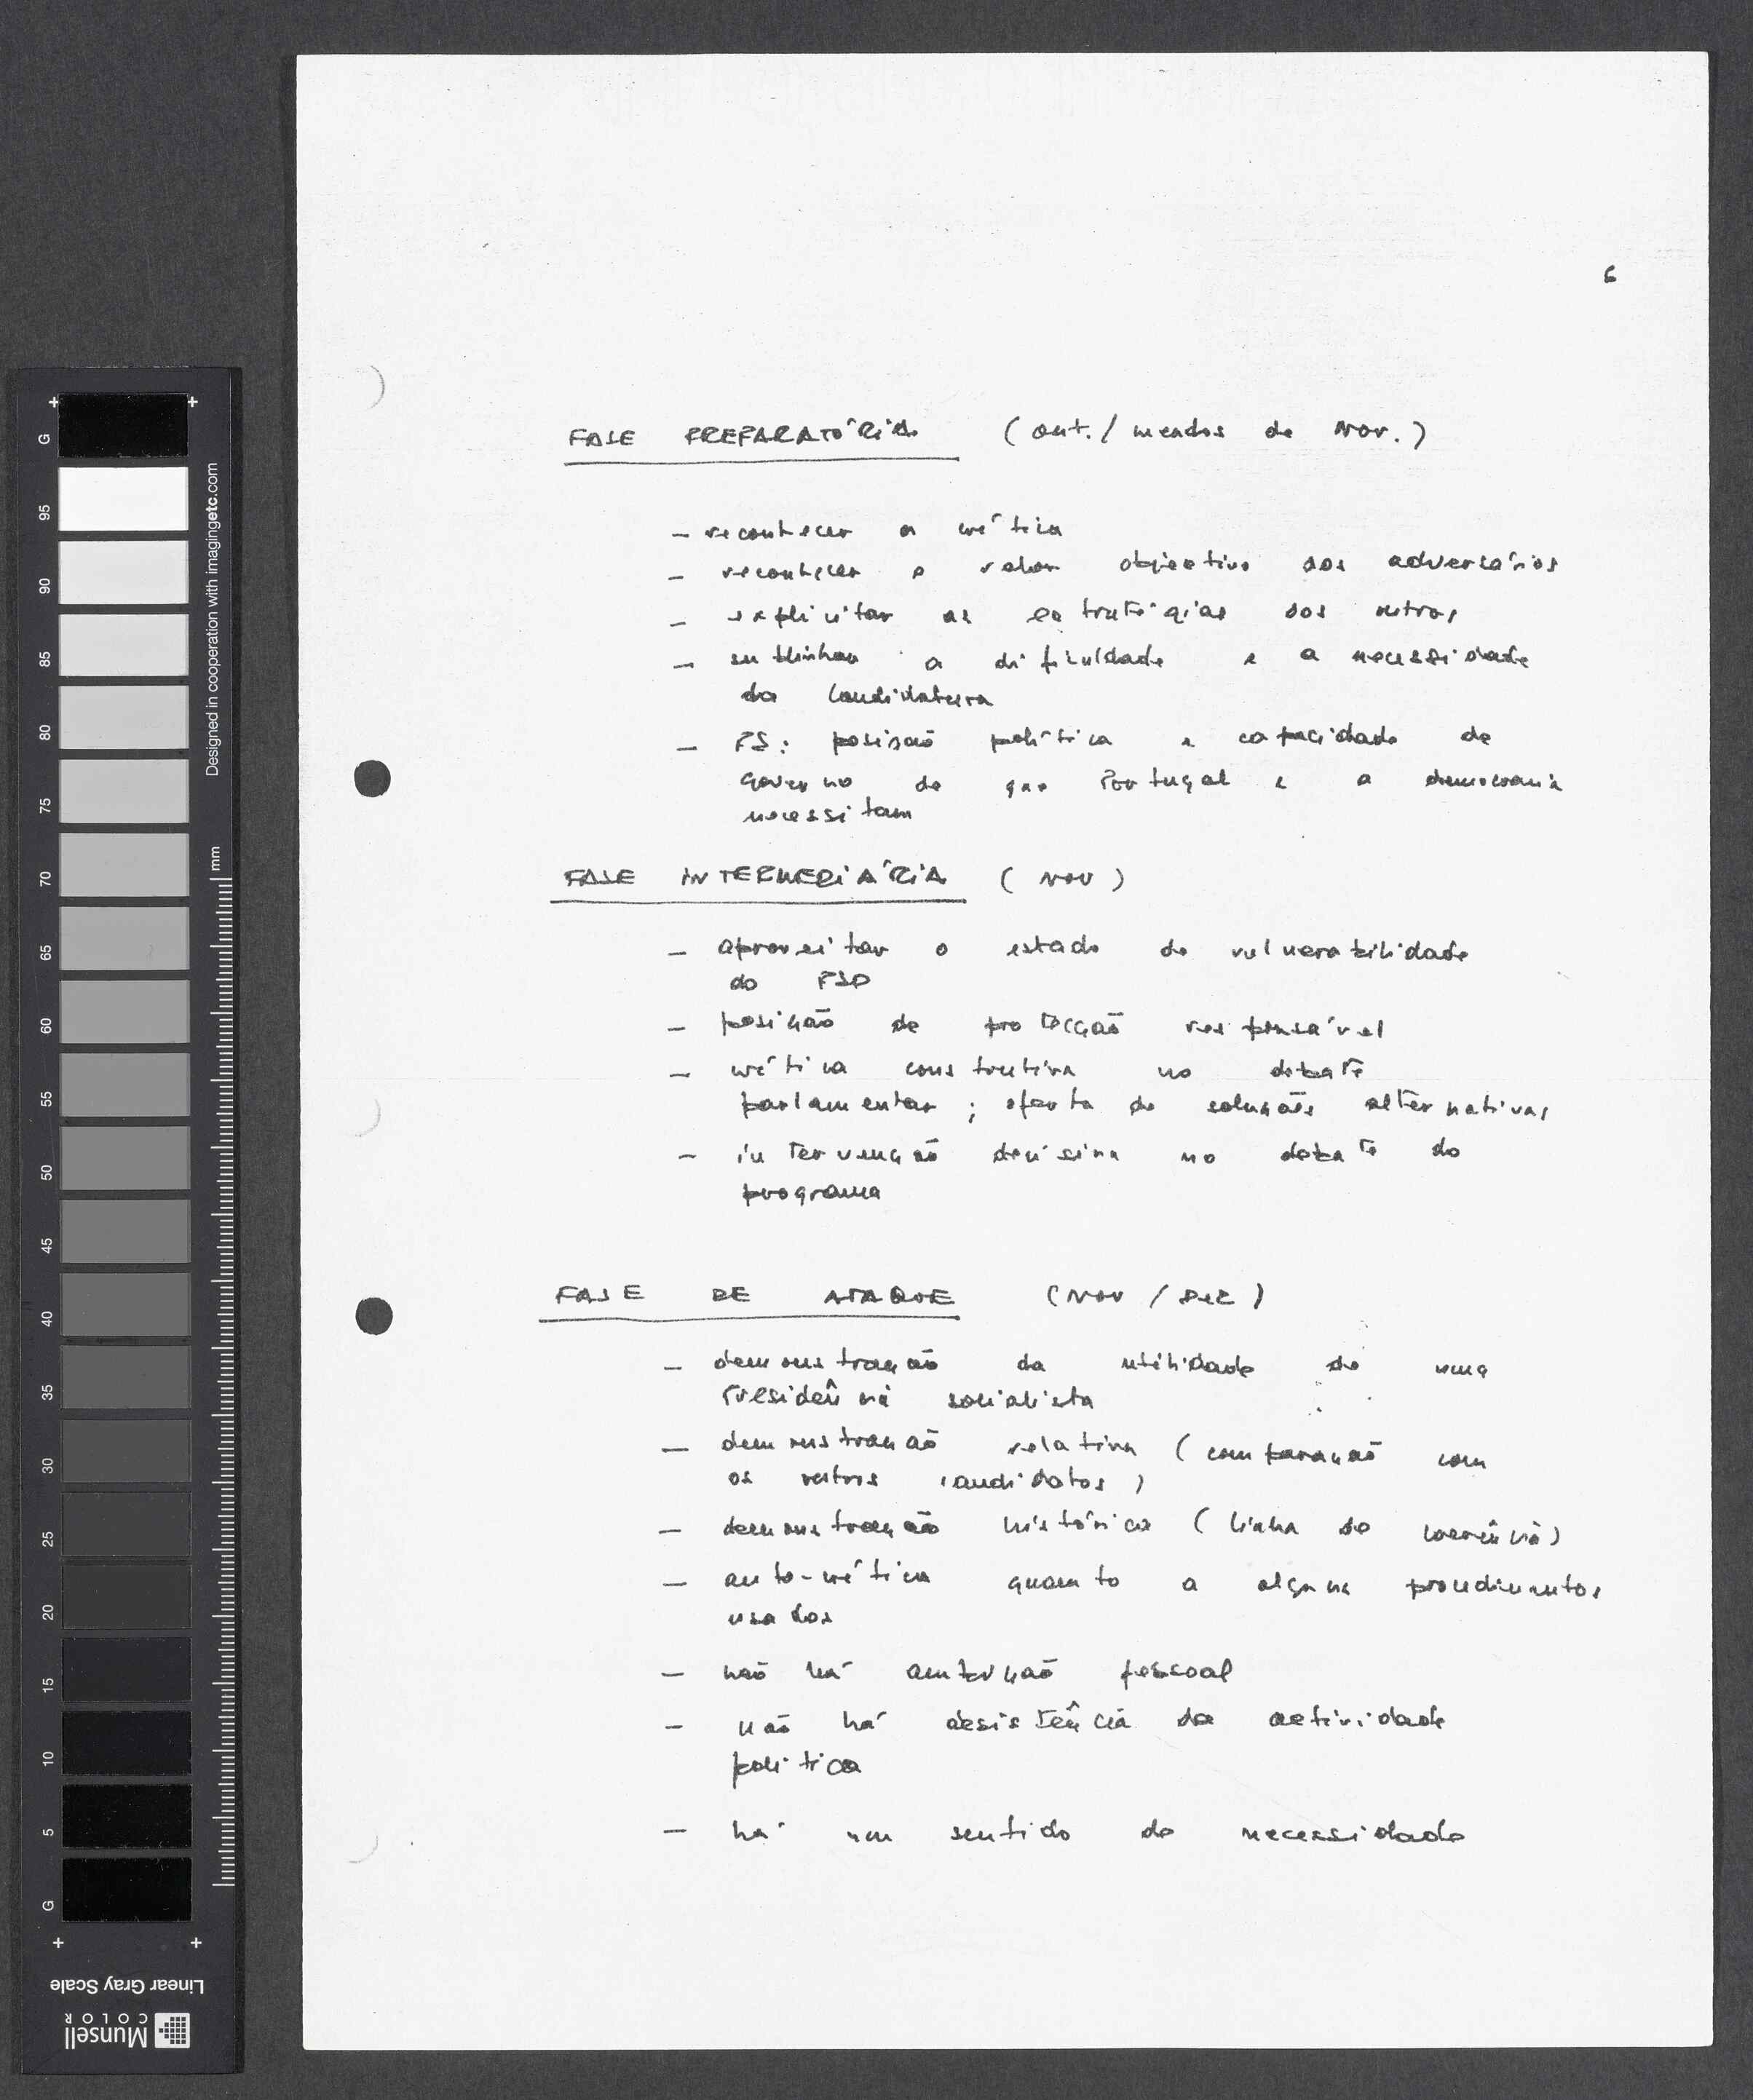 6
FASE PREPARATÓRIA (out. / meados de Nov.)
- reconhecer a crítica
- reconhecer o valor objectivo dos adversários
- explicitar as estratégias dos outros
- sublinhar a dificuldade e a necessidade
da candidatura
- PS: posição política e capacidade de
governo de que Portugal e a democracia
necessitam
FASE INTERMEDIÁRIA (NOV)
- aproveitar o estado de vulnerabilidade
do PSD
- posição de protecção responsável
- crítica construtiva no debate
parlamentar ; oferta de soluções alternativas
- intervenção decisiva no debate do
programa
FASE DE ATAQUE (NOV / DEZ)
- demonstração da utilidade de uma
Presidência socialista
- demonstração relativa (comparação com
os outros candidatos)
- demonstração histórica (linha de coerência)
- auto-crítica quanto a alguns procedimentos
usados
- não há ambição pessoal
- não há desistência da actividade
política
- há um sentido de necessidade
G
95
90
85
80
75
70
65
60
55
50
45
40
35
30
25
20
15
10
5
G
mm
Designed in cooperation with imagingetc.com
Linear Gray Scale
Munsell
COLOR